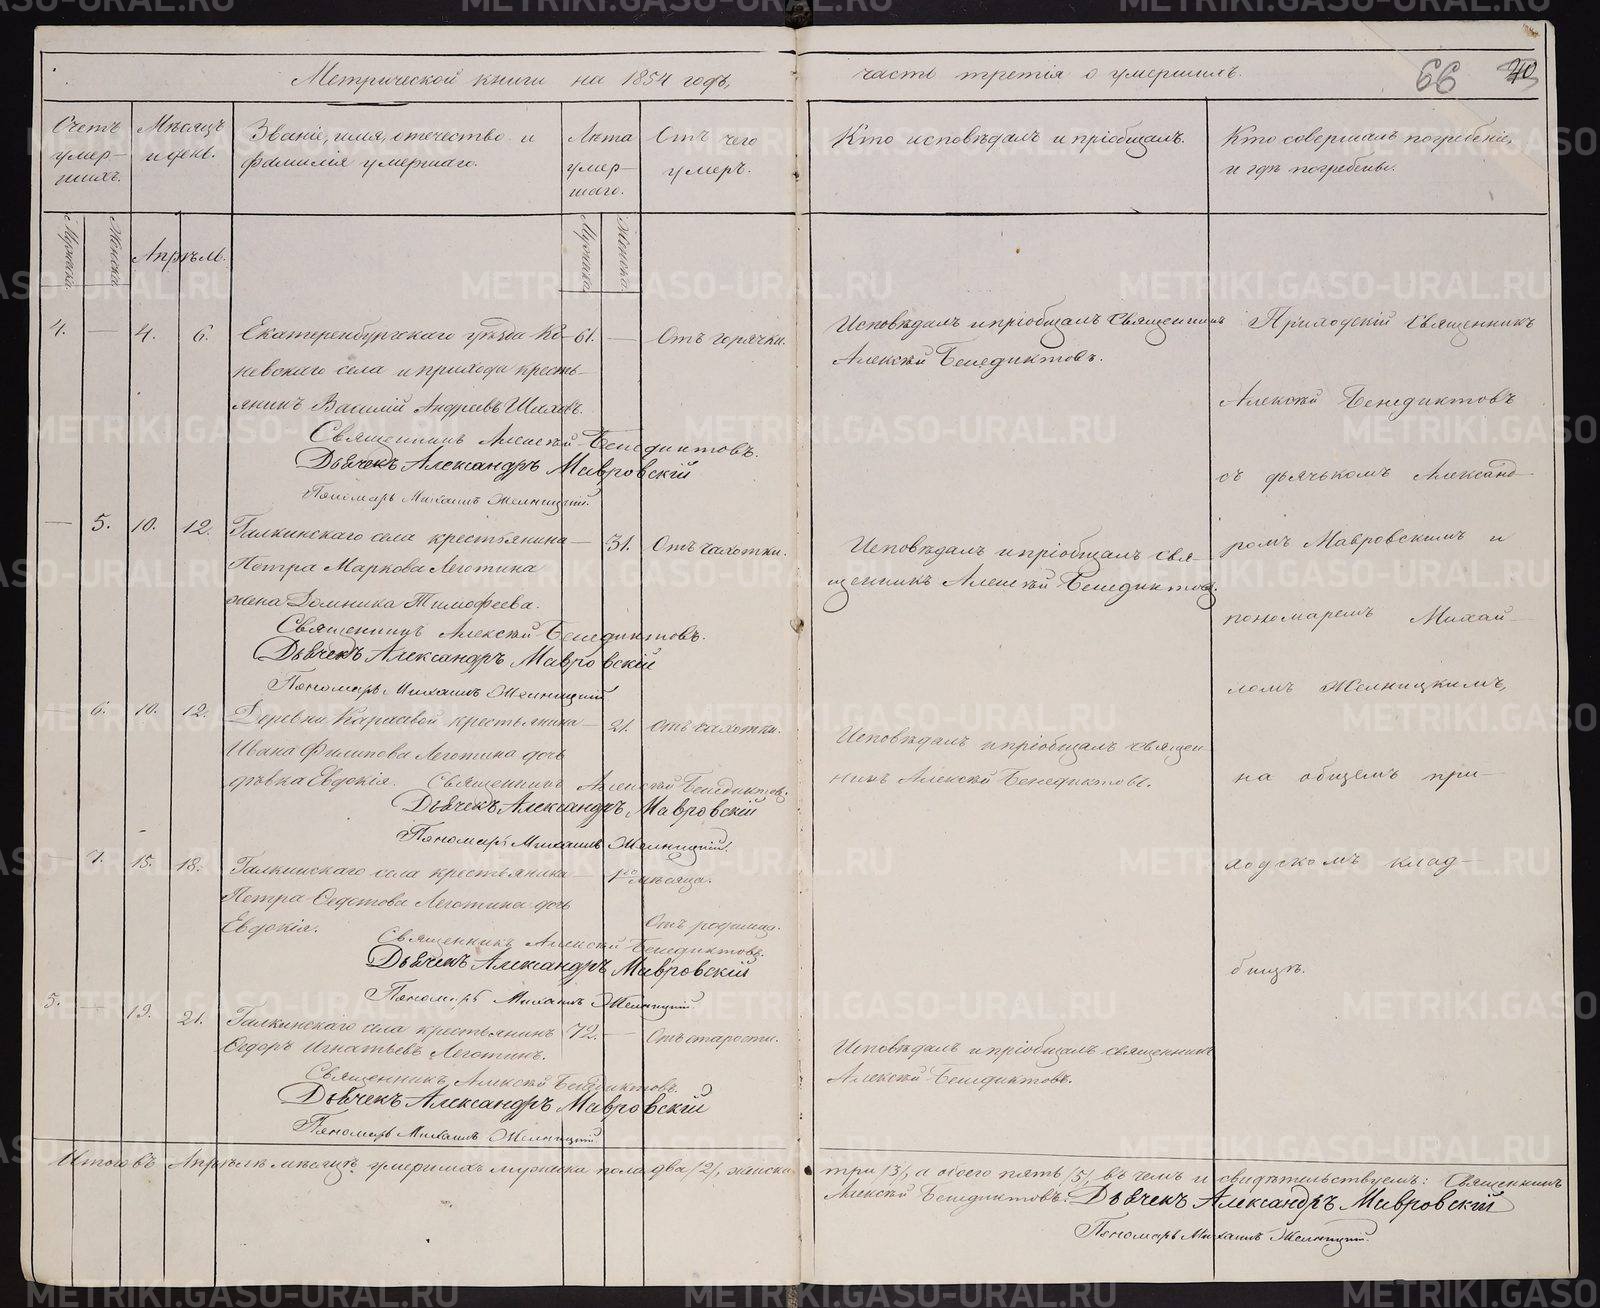 Метрической книги на 1854 годъ, часть третія о умершихъ. 66
Счетъ умер-шихъ.
Мѣсяцъ и день.
Званіе, имя, отечество и фамилія умершаго.
Лѣта умер-шаго.
Отъ чего умеръ.
Кто исповѣдалъ и пріобщалъ.
Кто совершалъ погребеніе, и гдѣ погребены.
Мужеска.
Женска.
Апрѣль.
Мужеска.
Женска.
4. — 4. 6. Екатеринбургскаго уѣзда Ко- 61. — Отъ горячки.
невскаго села и прихода кресть-
янинъ Василій Андреевъ Шиховъ.
Священникъ Алексѣй Бенедиктовъ.
Дьячекъ Александръ Мавровскій
Пономарь Михаилъ Желницкій.
Исповѣдалъ и пріобщалъ священникъ
Алексѣй Бенедиктовъ.
— 5. 10. 12. Галкинскаго села крестьянина — 31. Отъ чахотки.
Петра Маркова Леготина
жена Домника Тимофеева.
Священникъ Алексѣй Бенедиктовъ.
Дьячекъ Александръ Мавровскій
Пономарь Михаилъ Желницкій
Исповѣдалъ и пріобщалъ свя-
щенникъ Алексѣй Бенедиктовъ.
— 6. 10. 12. Деревни Карасевой крестьянина — 21. Отъ чахотки.
Ивана Филипова Леготина дочь
дѣвка Евдокія. Священникъ Алексѣй Бенедиктовъ.
Дьячекъ Александръ Мавровскій
Пономарь Михаилъ Желницкій.
Исповѣдалъ и пріобщалъ священ-
никъ Алексѣй Бенедиктовъ.
— 7. 15. 18. Галкинскаго села крестьянина — 1го мѣсяца.
Петра Федотова Леготина дочь
Евдокія. Отъ родимца.
Священникъ Алексѣй Бенедиктовъ.
Дьячекъ Александръ Мавровскій
Пономарь Михаилъ Желницкій.
5. — 19. 21. Галкинскаго села крестьянинъ 72. — Отъ старости.
Федоръ Игнатьевъ Леготинъ.
Священникъ Алексѣй Бенедиктовъ.
Дьячекъ Александръ Мавровскій
Пономарь Михаилъ Желницкій.
Исповѣдалъ и пріобщалъ священникъ
Алексѣй Бенедиктовъ.
Приходскій священникъ
Алексѣй Бенедиктовъ
съ дьячькомъ Александ-
ромъ Мавровскимъ и
пономаремъ Михай-
ломъ Желницкимъ,
на общемъ при-
ходскомъ клад-
бищѣ.
Итого въ Апрѣлѣ мѣсяцѣ умершихъ мужеска пола два /2/, женска три /3/, а обоего пять /5/, въ чемъ и свидѣтельствуемъ: Священникъ
Алексѣй Бенедиктовъ. Дьячекъ Александръ Мавровскій
Пономарь Михаилъ Желницкій.
METRIKI.GASO-URAL.RU